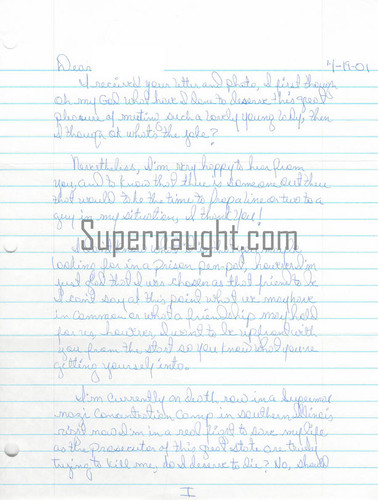 Dear 4-19-01
I received your letter and photo, I first though
oh my God what have I done to deserve this great
pleasure of meeting such a lovely young lady, then
I though ok whats the joke?
Nevertheless, I'm very happy to hear from
you, and to know that there is someone out there
that would take the time to drop a line or two to a
guy in my situation, I thank you!
Supernaught.com
looking for in a prison pen-pal, however I'm
just glad that I was chosen as that friend to be
I can't say at this point what we may have
in common or what a friendship may hold
for us, however I want to be upfront with
you from the start so you know what you're
getting yourself into.
I'm currently on death row in a Supermax
nazi Concentration Camp in southern Illinois
right now I'm in a real fight to save my life
as the prosecutor of this great state are truly
trying to kill me, do I deserve to die? No, should
I